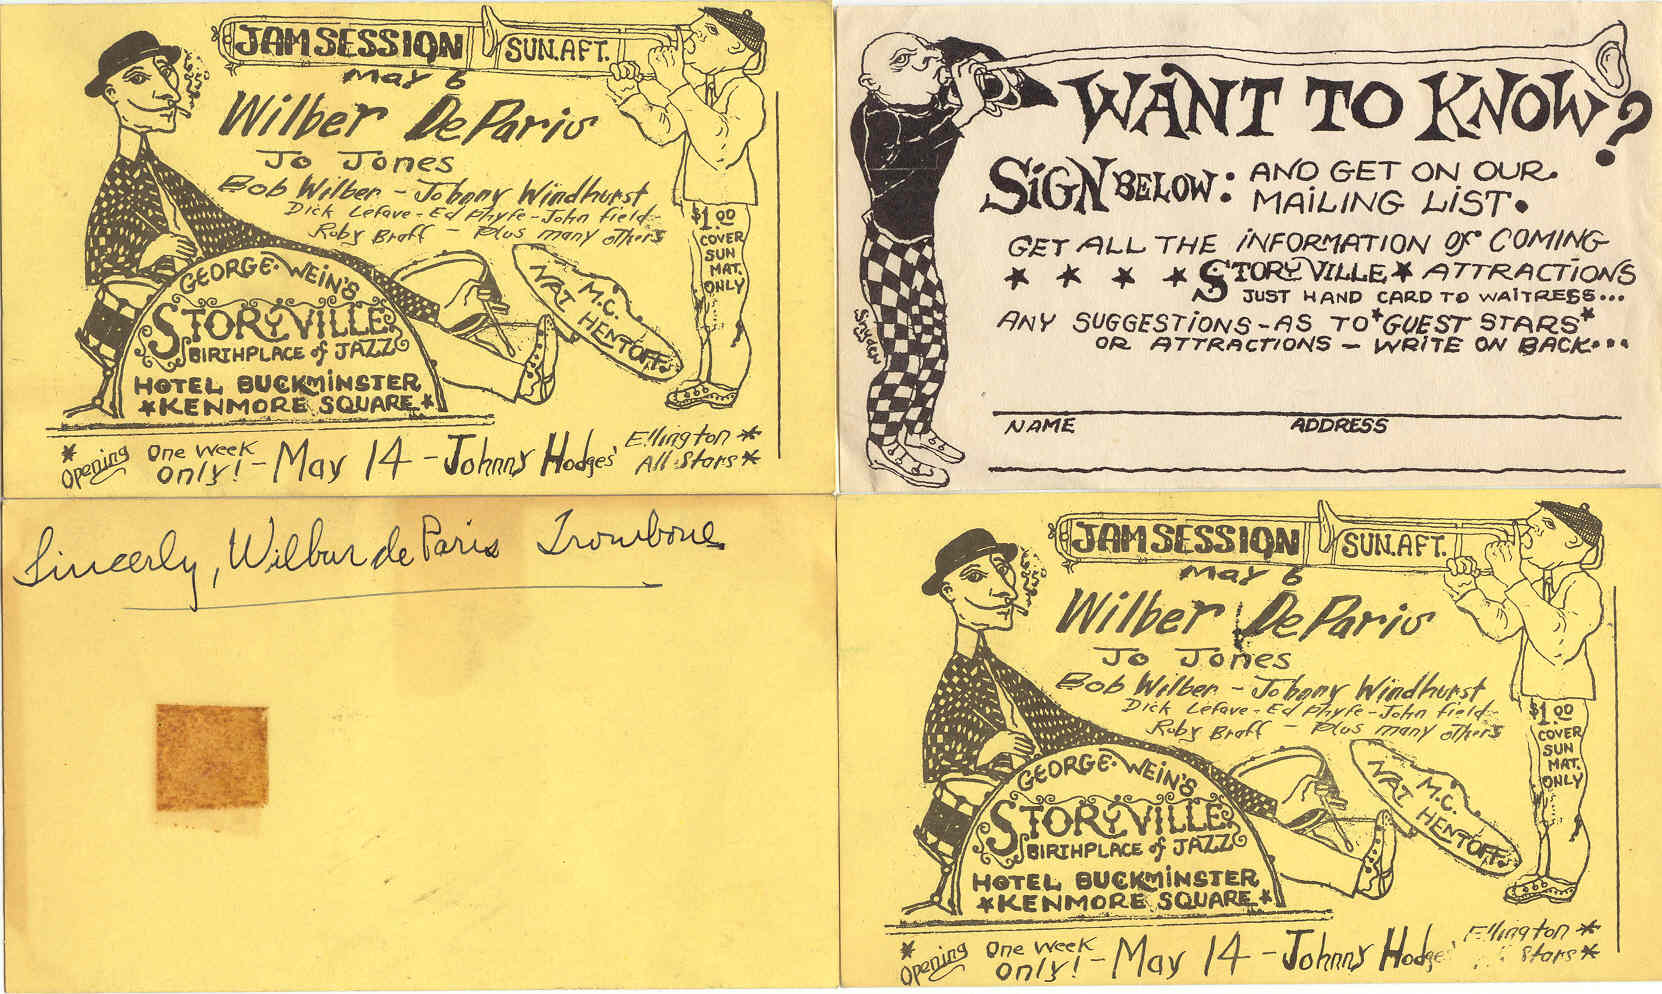 JAM SESSION SUN. AFT.
May 6
Wilber De Paris
Jo Jones
Bob Wilber - Johnny Windhurst
Dick Lefave - Ed Phyfe - John Field
Ruby Braff - Plus many others
$1.00
COVER
SUN
MAT.
ONLY
GEORGE WEIN'S
STORYVILLE
BIRTHPLACE of JAZZ
HOTEL BUCKMINSTER
*KENMORE SQUARE*
M.C.
NAT HENTOFF
* Opening One Week Only! - May 14 - Johnny Hodges' Ellington * All Stars *
WANT TO KNOW?
SIGN BELOW: AND GET ON OUR
MAILING LIST.
GET ALL THE INFORMATION OF COMING
* * * * STORYVILLE * ATTRACTIONS
JUST HAND CARD TO WAITRESS...
ANY SUGGESTIONS - AS TO *GUEST STARS*
OR ATTRACTIONS - WRITE ON BACK...
Snyder
NAME ADDRESS
Sincerly, Wilbur de Paris Trombone
JAM SESSION SUN. AFT.
May 6
Wilber De Paris
Jo Jones
Bob Wilber - Johnny Windhurst
Dick Lefave - Ed Phyfe - John Field
Ruby Braff - Plus many others
$1.00
COVER
SUN
MAT.
ONLY
GEORGE WEIN'S
STORYVILLE
BIRTHPLACE of JAZZ
HOTEL BUCKMINSTER
*KENMORE SQUARE*
M.C.
NAT HENTOFF
* Opening One Week Only! - May 14 - Johnny Hodges' Ellington * Stars *